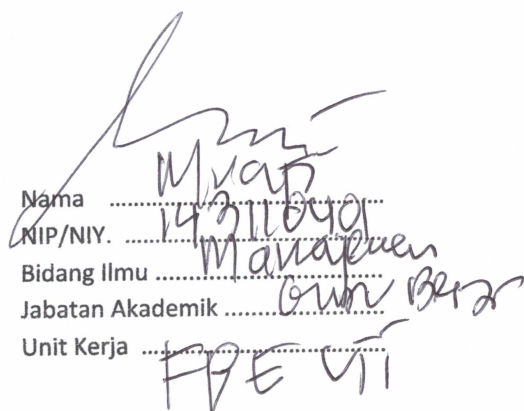 Nama ........................
NIP/NIY. ........................ 
Bidang Ilmu ........................ Manajemen
Jabatan Akademik ........................ Guru Besar
Unit Kerja ........................ FBE UII